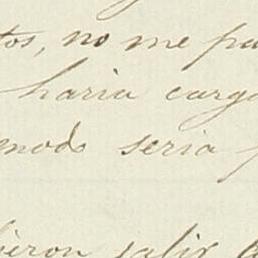 tos, no me pa
haria carg
modo seria
ieron salir a